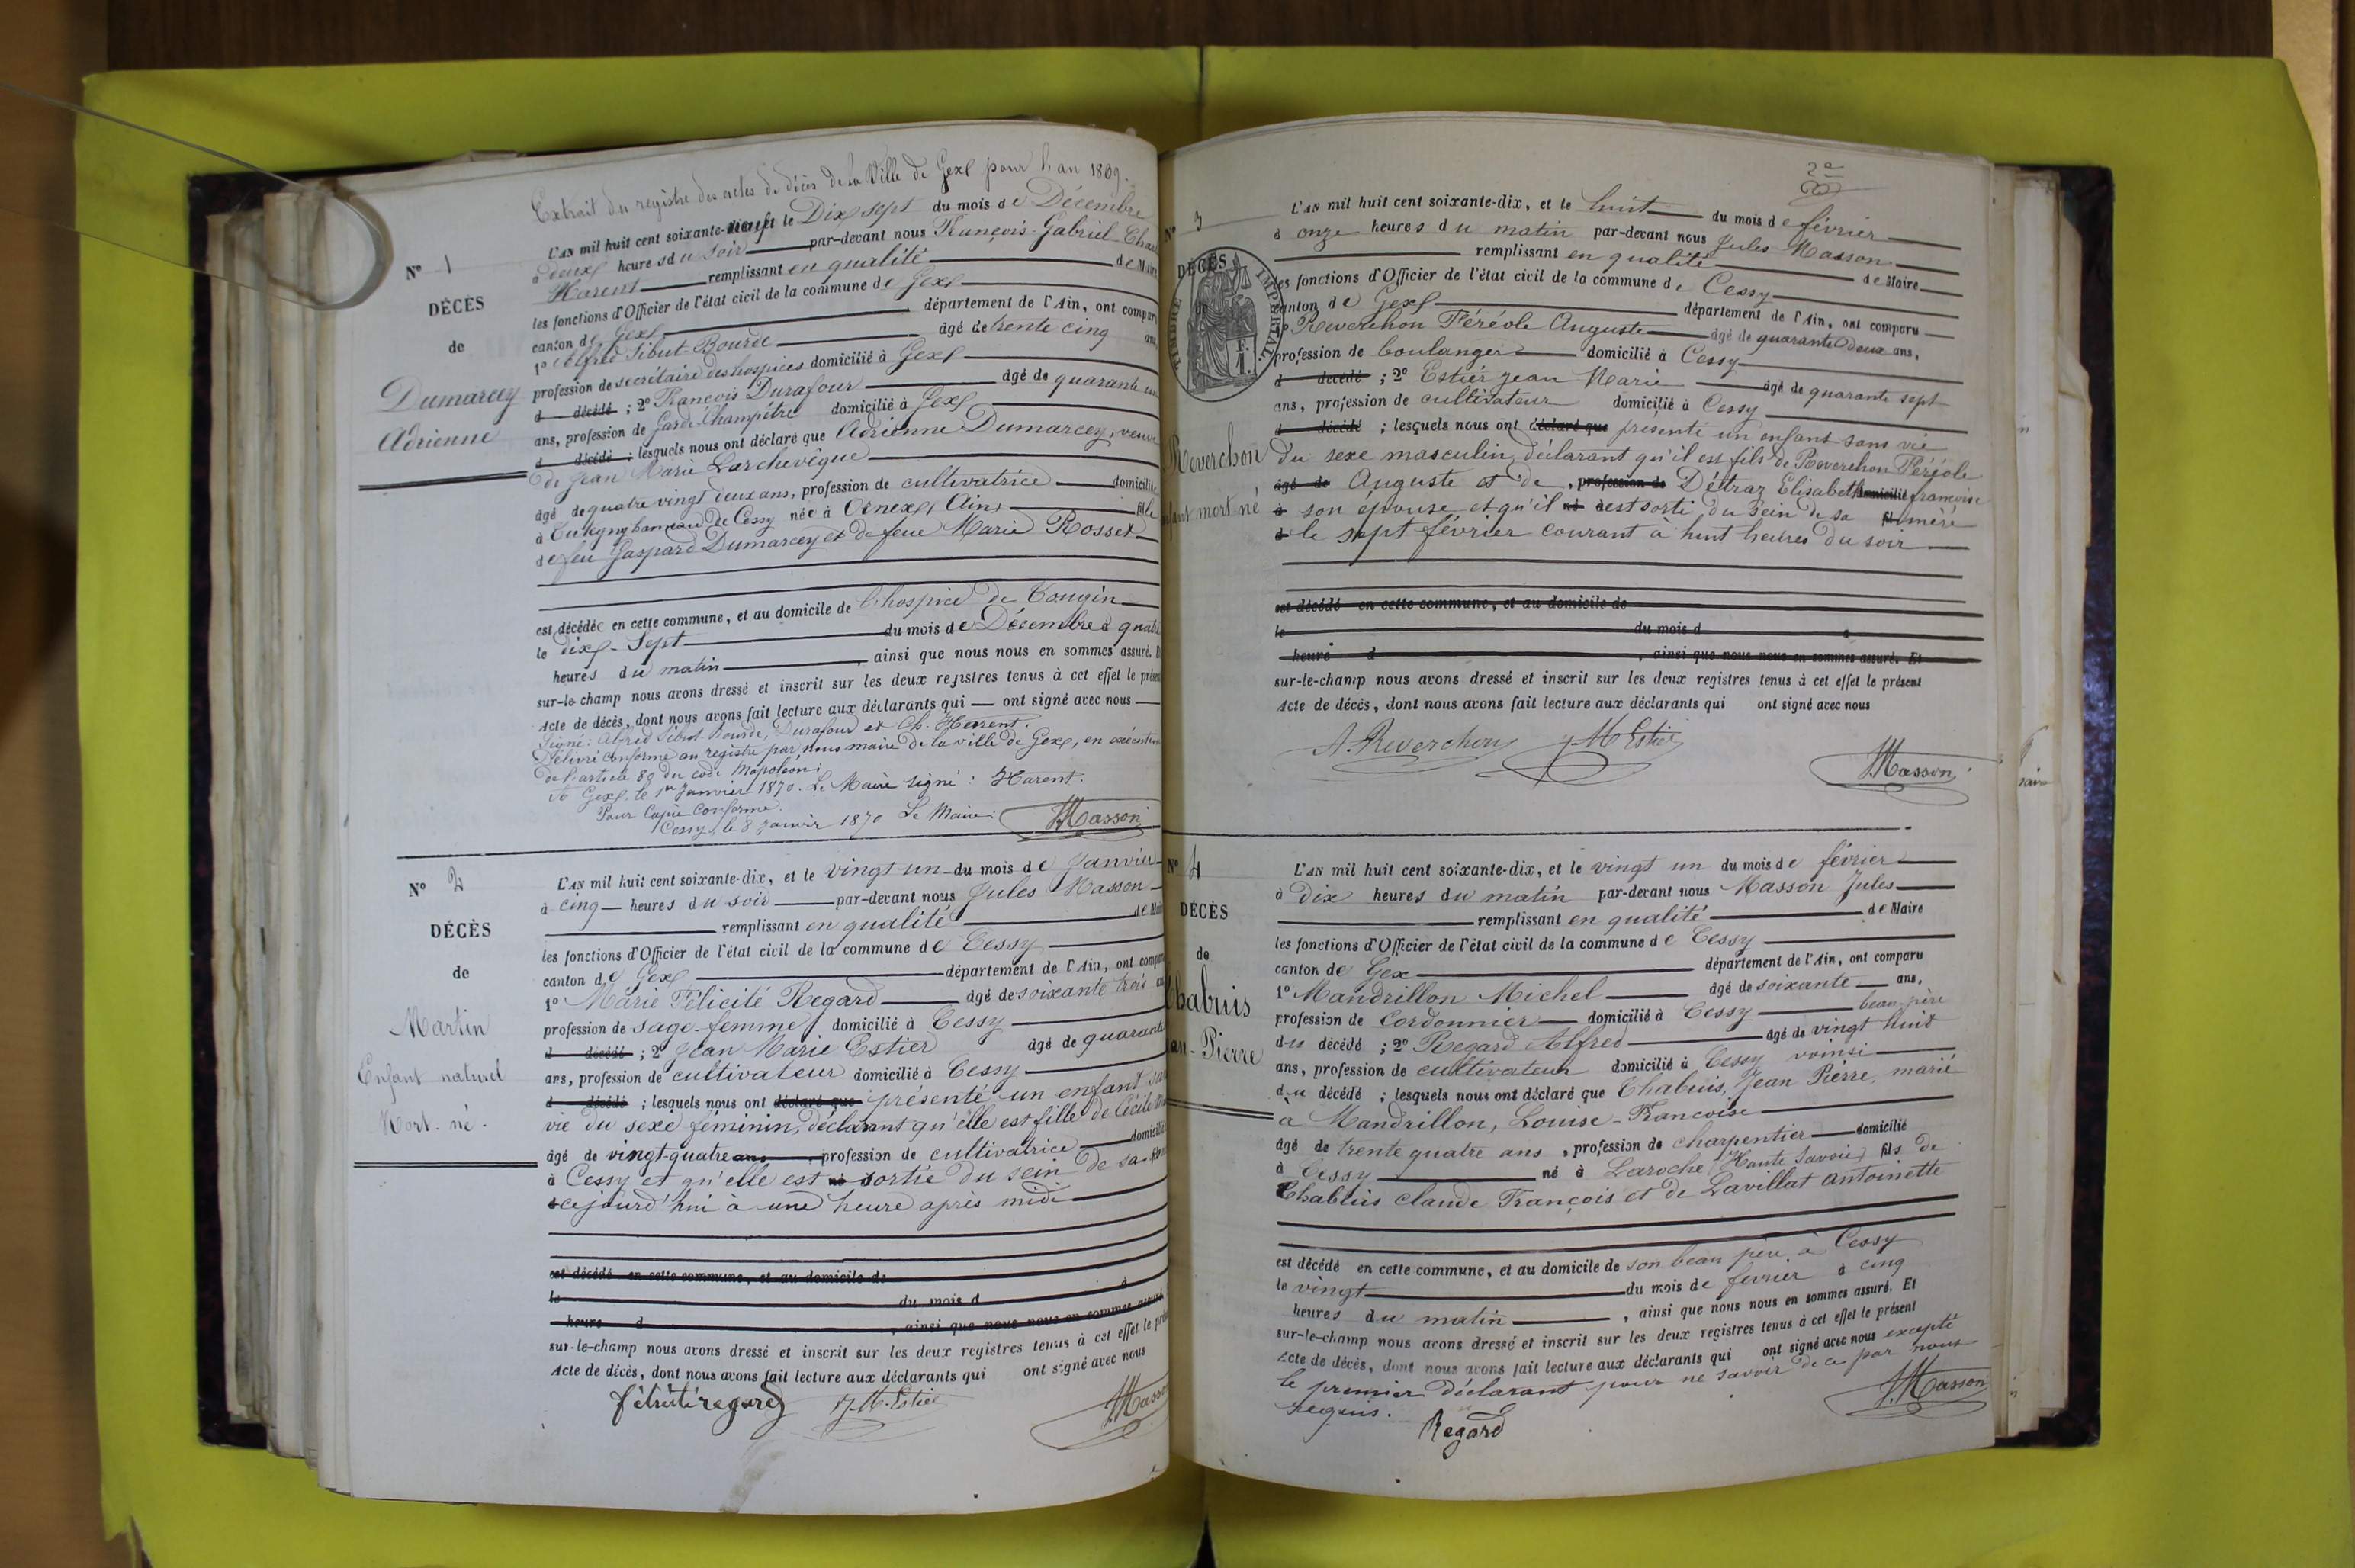 Extrait du registre des actes de décès de la Ville de Gex pour l'an 1869.
N° 1
DÉCÈS
de
Dumarcey
Adrienne
L'AN mil huit cent soixante-neuf et le Dix sept du mois de Décembre
à deux heures du soir par-devant nous François-Gabriel-Char
Harent remplissant en qualité de Maire
les fonctions d'Officier de l'état civil de la commune de Gex
canton de Gex département de l'Ain, ont comparu
1° Alfred Sibut-Bourde âgé de trente cinq ans
profession de secrétaire des hospices domicilié à Gex
d décédé ; 2° François Durafour âgé de quarante un
ans, profession de Garde-Champêtre domicilié à Gex
d décédé ; lesquels nous ont déclaré que Adrienne Dumarcey, veuve
de Jean Marie Larchevêque
âgé de quatre vingt deux ans, profession de cultivatrice domicilié
à hameau de Cessy née à Ornex, Ain fille
de feu Gaspard Dumarcey et de feue Marie Rosset
est décédée en cette commune, et au domicile de l'hospice de Tougin
le dix-Sept du mois de Décembre à quatre
heures du matin, ainsi que nous nous en sommes assuré. Et
sur-le-champ nous avons dressé et inscrit sur les deux registres tenus à cet effet le présent
Acte de décès, dont nous avons fait lecture aux déclarants qui ont signé avec nous
Signé : Alfred Sibut Bourde, Durafour et Ch. Harent.
Délivré conforme au registre par nous maire de la ville de Gex, en exécution
de l'article 80 du code Napoléon ;
à Gex, le 1er Janvier 1870. Le Maire signé : Harent.
Pour Copie Conforme.
Cessy, le 8 Janvier 1870 Le Maire : JMasson
N° 2
DÉCÈS
de
Martin
Enfant naturel
Mort-né.
L'AN mil huit cent soixante-dix, et le vingt un du mois de Janvier
à cinq heures du soir par-devant nous Jules Masson
remplissant en qualité de Maire
les fonctions d'Officier de l'état civil de la commune de Cessy
canton de Gex département de l'Ain, ont comparu
1° Marie Félicité Regard âgé de soixante trois ans
profession de sage-femme domicilié à Cessy
d décédé ; 2° Jean Marie Estier âgé de quarante
ans, profession de cultivateur domicilié à Cessy
d décédé ; lesquels nous ont déclaré que présenté un enfant sans
vie du sexe féminin, déclarant qu'elle est fille de Cécile
âgé de vingt-quatre ans profession de cultivatrice domicilié
à Cessy et qu'elle est né sortie du sein de sa
cejourd'hui à une heure après midi
est décédé en cette commune, et au domicile de
le du mois d à
heure d, ainsi que nous nous en sommes assuré
sur-le-champ nous avons dressé et inscrit sur les deux registres tenus à cet effet le présent
Acte de décès, dont nous avons fait lecture aux déclarants qui ont signé avec nous
félicité regard J. M. Estier JMasson
2e
N° 3
DÉCÈS
de
TIMBRE IMPÉRIAL
1 F.
Reverchon
enfant mort né
L'AN mil huit cent soixante-dix, et le huit du mois de février
à onze heures du matin par-devant nous Jules Masson
remplissant en qualité de Maire
les fonctions d'Officier de l'état civil de la commune de Cessy
canton de Gex département de l'Ain, ont comparu
1° Reverchon Féréole Auguste âgé de quarante deux ans,
profession de boulanger domicilié à Cessy
d décédé ; 2° Estier Jean Marie âgé de quarante sept
ans, profession de cultivateur domicilié à Cessy
d décédé ; lesquels nous ont déclaré que présenté un enfant sans vie
du sexe masculin, déclarant qu'il est fils de Reverchon Féréole
âgé de Auguste et de, profession de Déttraz Elisabeth domicilié françoise
à son épouse et qu'il né est sorti du sein de sa fil mère
d le sept février courant à huit heures du soir
est décédé en cette commune, et au domicile de
le du mois d à
heure d, ainsi que nous nous en sommes assuré. Et
sur-le-champ nous avons dressé et inscrit sur les deux registres tenus à cet effet le présent
Acte de décès, dont nous avons fait lecture aux déclarants qui ont signé avec nous
A. Reverchon J M Estier JMasson
N° 4
DÉCÈS
de
Chabuis
Jean-Pierre
L'AN mil huit cent soixante-dix, et le vingt un du mois de février
à Dix heures du matin par-devant nous Masson Jules
remplissant en qualité de Maire
les fonctions d'Officier de l'état civil de la commune de Cessy
canton de Gex département de l'Ain, ont comparu
1° Mandrillon Michel âgé de soixante ans,
profession de Cordonnier domicilié à Cessy beau-père
du décédé ; 2° Regard Alfred âgé de vingt huit
ans, profession de cultivateur domicilié à Cessy voinsi
du décédé ; lesquels nous ont déclaré que Chabuis, Jean Pierre, marié
à Mandrillon, Louise-Francoise
âgé de trente quatre ans, profession de charpentier domicilié
à Cessy né à Laroche (Haute Savoie) fils de
Chabuis claude François et de Lavillat antoinette
est décédé en cette commune, et au domicile de son beau père à Cessy
le vingt du mois de fevrier à cinq
heures du matin, ainsi que nous nous en sommes assuré. Et
sur-le-champ nous avons dressé et inscrit sur les deux registres tenus à cet effet le présent
Acte de décès, dont nous avons fait lecture aux déclarants qui ont signé avec nous excepté
le premier déclarant pour ne savoir de ce par nous
requis. Regard JMasson